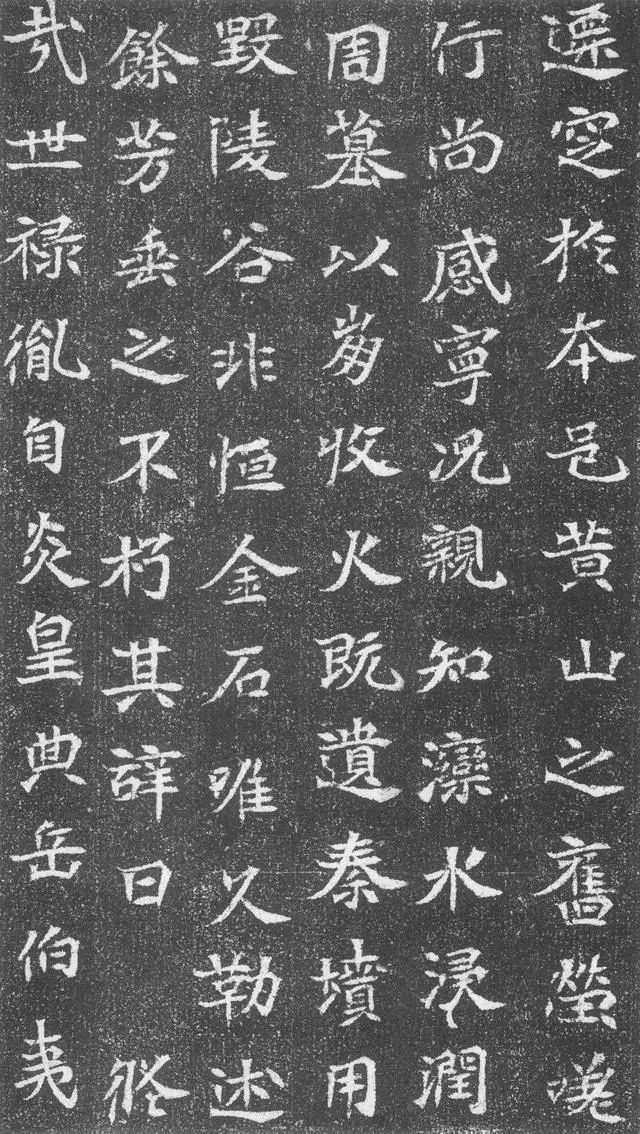 還窆於本邑黃山之舊塋嘆
行尚感寧况親知灤水浸潤
周墓以崩牧火既遺秦墳用
毀陵谷非恒金石唯久勒述
餘芳垂之不朽其辭曰 悠
哉世禄胤自炎皇典岳伯夷